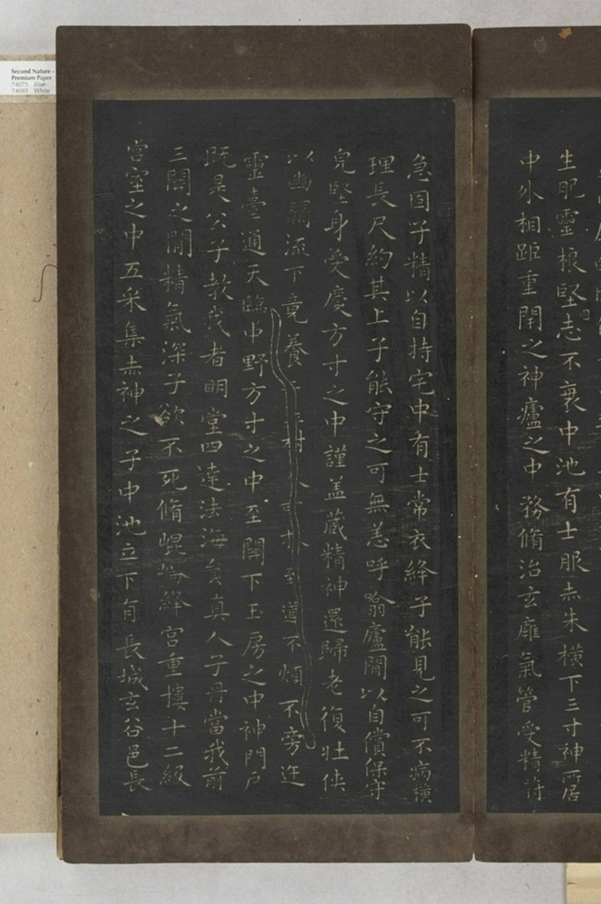 生肥靈根堅志不衰中池有士服赤朱橫下三寸神所居
中外相距重閇之神廬之中務脩治玄廱氣管受精符
急固子精以自持宅中有士常衣絳子能見之可不病橫
理長尺約其上子能守之可無恙呼翕廬間以自償保守
完堅身受慶方寸之中謹盖藏精神還歸老復壯俠
以幽闕流下竟養 至道不煩不旁迕
靈臺通天臨中野方寸之中至關下玉房之中神門戶
既是公子教我者明堂四達法海員真人子丹當我前
三關之間精氣深子欲不死脩崐崘絳宮重樓十二級
宮室之中五采集赤神之子中池立下有長城玄谷邑長
Second Nature
Premium Paper